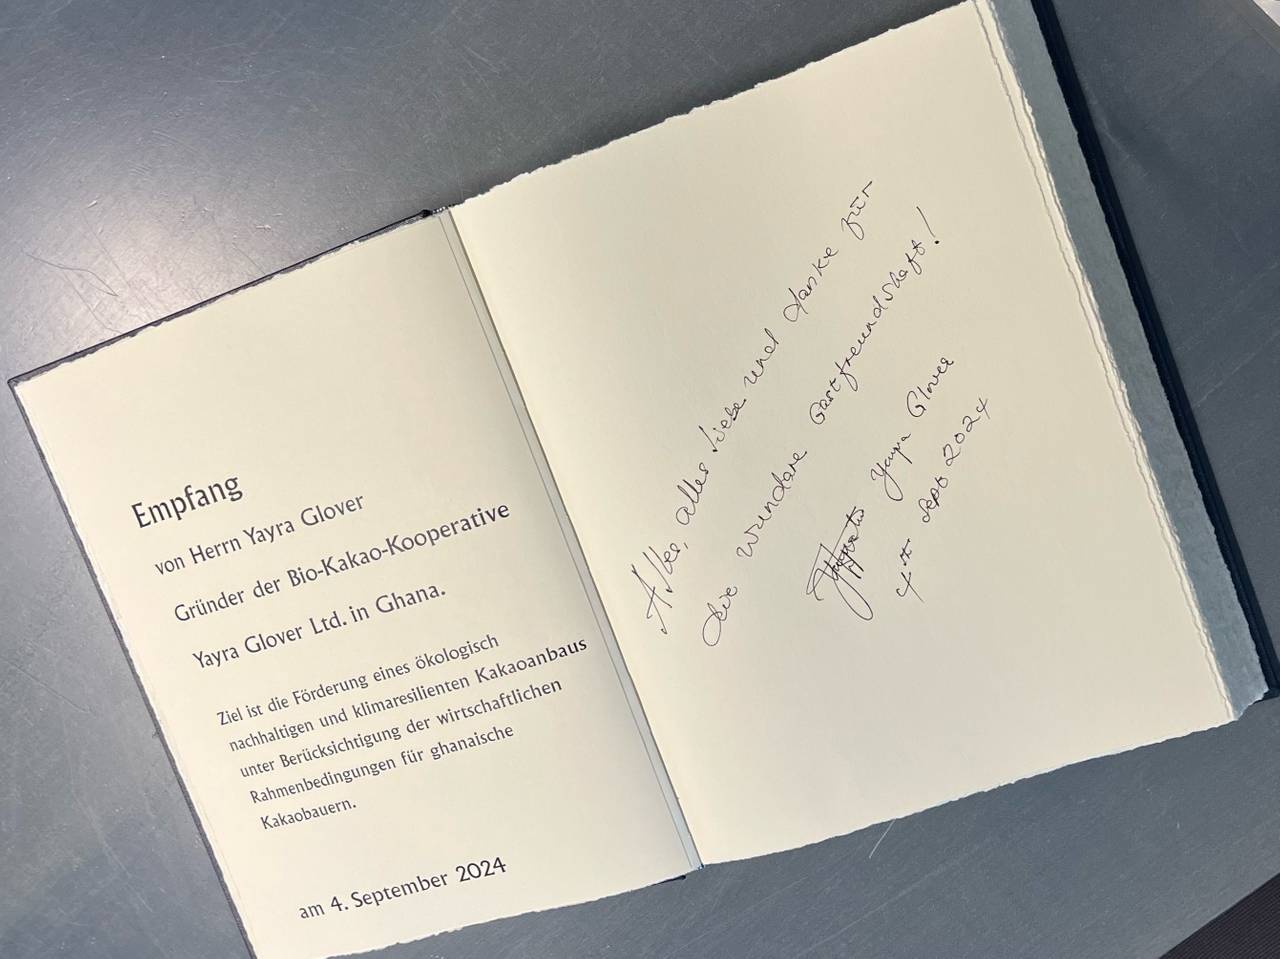 Empfang
von Herrn Yayra Glover
Gründer der Bio-Kakao-Kooperative
Yayra Glover Ltd. in Ghana.
Ziel ist die Förderung eines ökologisch
nachhaltigen und klimaresilienten Kakaoanbaus
unter Berücksichtigung der wirtschaftlichen
Rahmenbedingungen für ghanaische
Kakaobauern.
am 4. September 2024
Alles, alles Liebe und danke für
die wundare Gastfreundshaft!
Yayra Glover
Sept 2024